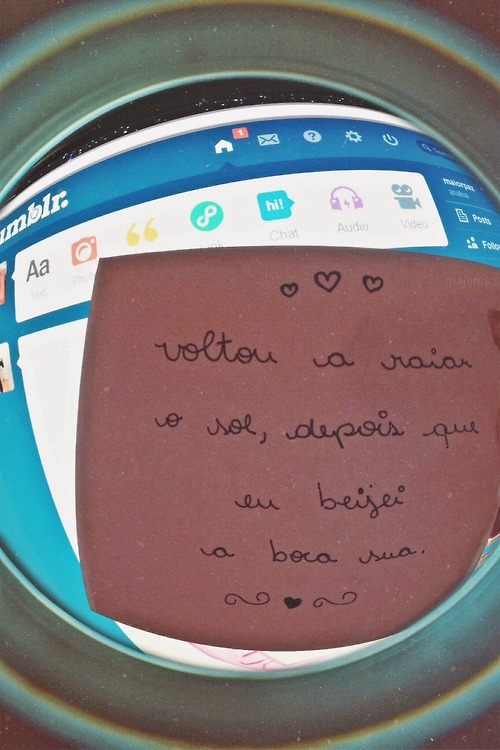 1
tumblr.
Aa
hi!
Text
Photo
Link
Chat
Audio
Video
maiorpaz
Posts
Follo
majorpaz
voltou a raiar
o sol, depois que
eu beijei
a boca sua.